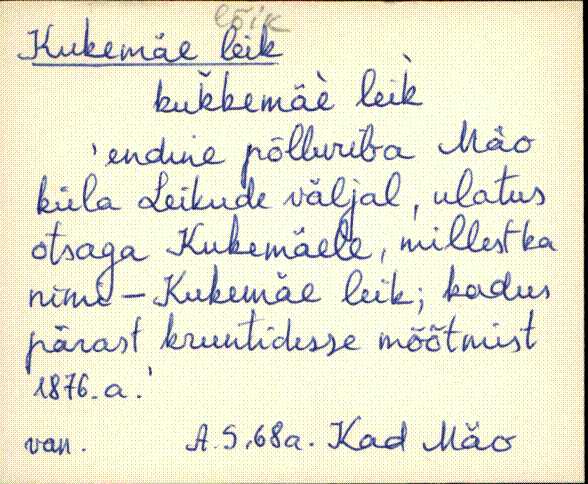 lõik
Kukemäe leik
kuk̆kemäè leìk
'endine põlluriba Mäo
küla Leikude väljal, ulatus
otsaga Kukemäele, millest ka
nimi – Kukemäe leik; kadus
pärast kruntidesse mõõtmist
1876. a.'
van. A. S, 68 a. Kad Mäo